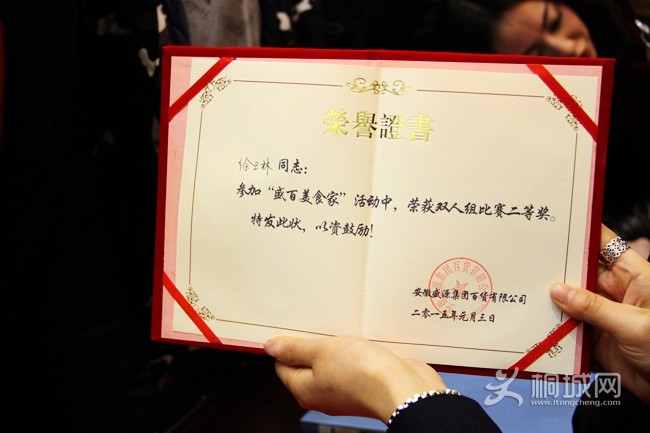 榮譽證書
徐云林 同志：
参加“盛百美食家”活动中，荣获双人组比赛二等奖。
特发此状，以资鼓励！
安徽盛源集团百货有限公司
二零一五年元月三日
桐城网
www.itongcheng.com